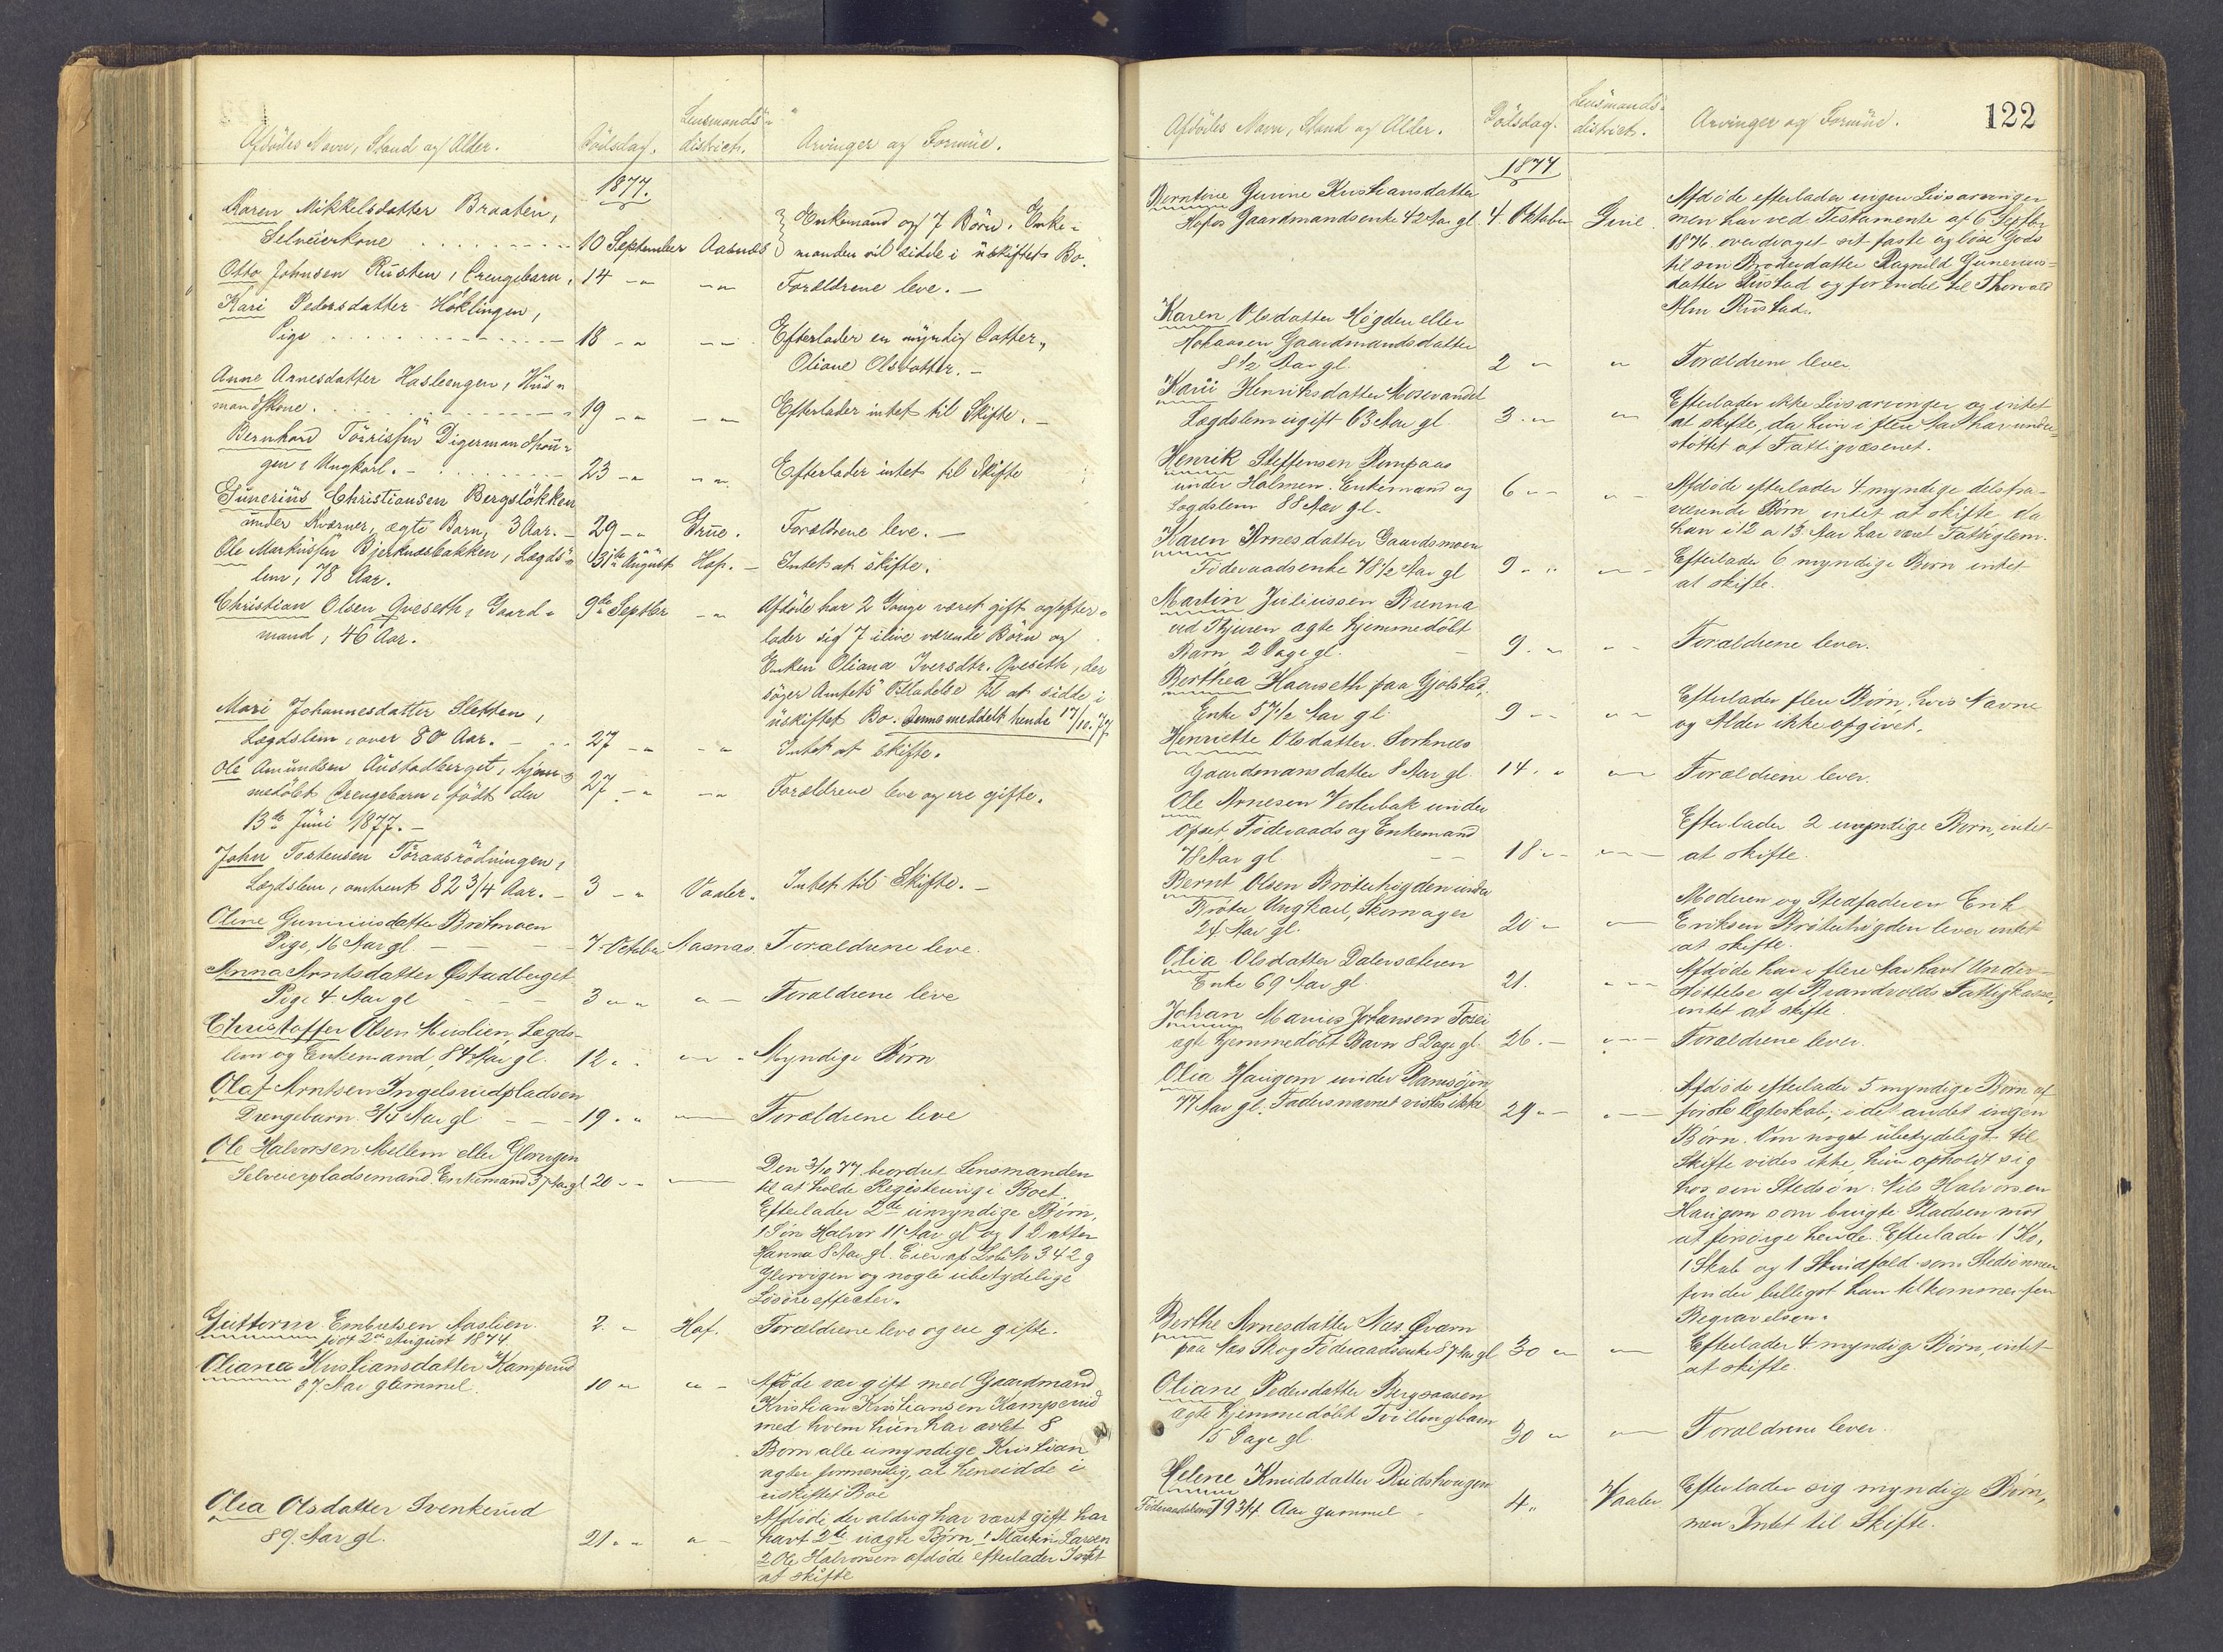 Afdödes Navn, Stand og Alder.
Dödsdag.
Lensmands-
district.
Arvinger og Formue.
1877.
Karen Mikkelsdatter Braaten,
Selveierkone
10 September
Aasnes
Enkemand og 7 Börn. Enke-
manden vil sidde i uskiftet Bo.
Otto Johnsen Rusten, Drengebarn,
14 - "
- "
Forældrene leve. -
Kari Pedersdatter Höklingen,
Pige
18 - "
- -
Efterlader en myndig Datter,
Oliane Olsdatter. -
Anne Arnesdatter Hasleengen, Hus-
mandskone.
19 - "
- "
Efterlader intet til Skifte. -
Bernhard
gen, Ungkarl. -
23 - "
- "
Efterlader intet til Skifte
Gunerius Christiansen Bergslökken
under Kværner, ægte Barn, 3 Aar. -
29 - "
Grue.
Forældrene leve. -
Ole Markussen Bjerknæsbakken, Lægds-
lem, 78 Aar.
31te August
Hof. -
Intet at skifte.
Christian Olsen Qveseth, Gaard-
mand, 46 Aar.
9de Septbr
- "
Afdöde har 2 Gange været gift og efter-
lader sig 7 ilive værende Börn og
Enken Oliana Iversdtr. Qveseth, der
söger Amtets Tilladelse til at sidde i
uskiftet Bo. Denne meddelt hende 17/10.77
Mari Johannesdatter Sletten,
Lægdslem, over 80 Aar. -
27 - "
- "
Intet at skifte.
Ole Amundsen Austadberget, hjem-
medöbt Drengebarn, födt den
13de Juni 1877. -
27 - "
- "
Forældrene leve og ere gifte.
John Tostensen Toraasrödningen,
Lægdslem, omtrent 82 3/4 Aar. -
3 - "
Vaaler.
Intet til Skifte. -
Oline Gunneriusdatter Brotmoen
Pige, 16 Aar gl.
7 October
Aasnæs.
Forældrene leve.
Anna Arntsdatter Østadberget
Pige 4 Aar gl
3 " "
" -
Forældrene leve
Christoffer Olsen Muslien, Lægds-
lem og Enkemand, 84 Aar gl.
12 "
" -
Myndige Børn
Olaf Arntsen Ingelsrudpladsen
Drengebarn 3/4 Aar gl
19 " "
Forældrene leve
Ole Halvorsen Mellem eller Glorvigen
Selveierpladsemand Enkemand 37 Aar gl
20 - -
Den 3/10 77 beordret Lensmanden
til at holde Registrering i Boet.
Efterlader 2de umyndige Børn,
1 Søn Halvor 11 Aar gl og 1 Datter
Hanna 8 Aar gl. Eier af Løbe No 342 g
Glorvigen og nogle ubetydelige
Løsøreeffecter.
Guttorm Embretsen Aaslien
født 2den August 1874
2. -
Hof.
Forældrene leve og ere gifte.
Oliana Kristiansdatter Kamperud
37 Aar gammel.
10 "
" -
Afdøde var gift med Gaardmand
Kristian Kristiansen Kamperud
med hvem hun har avlet 8
Børn alle umyndige Kristian
agter formentlig, at hensidde i
uskiftet Boe
Olea Olsdatter Svenkerud
89. Aar gl.
21 " "
" -
Afdøde der aldrig har været gift har
havt 2de uægte Børn 1 Martin Larsen
2 Ole Halvorsen afdøde efterlader Intet
at skifte
122
Afdødes Navn, Stand og Alder.
Dödsdag.
Lensmands-
district.
Arvinger og Formue.
1877
Berntine Gurine Kristiansdatter
Hofos Gaardmandsenke 42 Aar gl.
4. Oktober
Grue.
Afdøde efterlader ingen Livsarvinger
men har ved Testamente af 6 Septbr
1876. overdraget sit faste og løse Gods
til sin Broderdatter Ragnild Gunerius-
datter Rustad og for endel til Thorvald
Alm Rustad.
Karen Olsdatter Høgden eller
Gaardmandsdatter
8 1/2 Aar gl.
2 "
"
Forældrene lever
Kari Henriksdatter Mosevandet
Lægdslem ugift 63 Aar gl
3. "
"
Efterlader ikke Livsarvinger og intet
at skifte, da hun i flere Aar har under-
støttet af Fattigvæsenet.
Henrik Steffensen Rompaas
under Holmen. Enkemand og
Lægdslem 88 Aar gl.
6 - -
" -
Afdøde efterlader 4 myndige
værende Børn intet at skifte da
han i 12 a 13 Aar har været Fattiglem.
Karen Arnesdatter Gaardsmoen
Føderaadsenke 78 1/2 Aar gl
9 - "
" -
Efterlader 6 myndige Børn intet
at skifte.
Martin Juliussen Runna
ved ægte hjemmedøbt
Barn 2 Dage gl.
9. "
" -
Forældrene lever.
Berthea Haaeseth paa Gjølstad,
Enke 57 1/2 Aar gl.
9 - -
" -
Efterlader flere Børn, hvis Navne
og Alder ikke opgivet.
Henriette Olsdatter. Sorknæs
Gaardmansdatter 8 Aar gl.
14. "
" -
Forældrene lever.
Ole Arnesen Vesterbak under
Opset Føderaads og Enkemand
78 Aar gl
18 - -
" -
Efterlader 2 myndige Børn, intet
at skifte.
Bernt Olsen Brøterhøgden under
Brøter, Ungkarl, Skomager
24 Aar gl.
20 "
-
Moderen og Stedfaderen Erik
Eriksen Brøterhøgden lever intet
at skifte.
Olia Olsdatter Dalersæteren
Enke 69 Aar gl
21.
" -
Afdøde har i flere Aar havt Under-
støttelse af Brandvolds Fattigkasse,
intet at skifte
Johan Marius Johansen Fosli
ægte hjemmedøbt Barn 8 Dage gl.
26. -
" -
Forældrene lever.
Olia Haugom under Ramsøjen
77 Aar gl. Fadersnavnet vides ikke
29 " -
" -
Afdøde efterlader 5 myndige Børn af
første Ægteskab, i det andet ingen
Børn. Om noget ubetydeligt til
Skifte vides ikke, hun opholdt sig
hos sin Stedsøn Nils Halvorsen
Haugom som brugte Pladsen mod
at forsørge hende. Efterlader 1 Ko,
1 Skab og 1 Skindfeld som Stedsønnen
finder billigst han tilkommer for
Begravelsen.
Berthe Arnesdatter Næs Qværn
paa Næs Skog Føderaadsenke 87 Aar gl
30 "
"
Efterlader 4 myndige Børn, intet
at skifte.
Oliane Pedersdatter Bergaasen
ægte hjemmedøbt Tvillingbarn
15 Dage gl.
30 "
"
Forældrene lever.
Helene Knudsdatter Rudshougen
Føderaadskone 79 3/4 Aar gammel
4 "
Vaaler
Efterlader sig myndige Børn,
men Intet til Skifte.